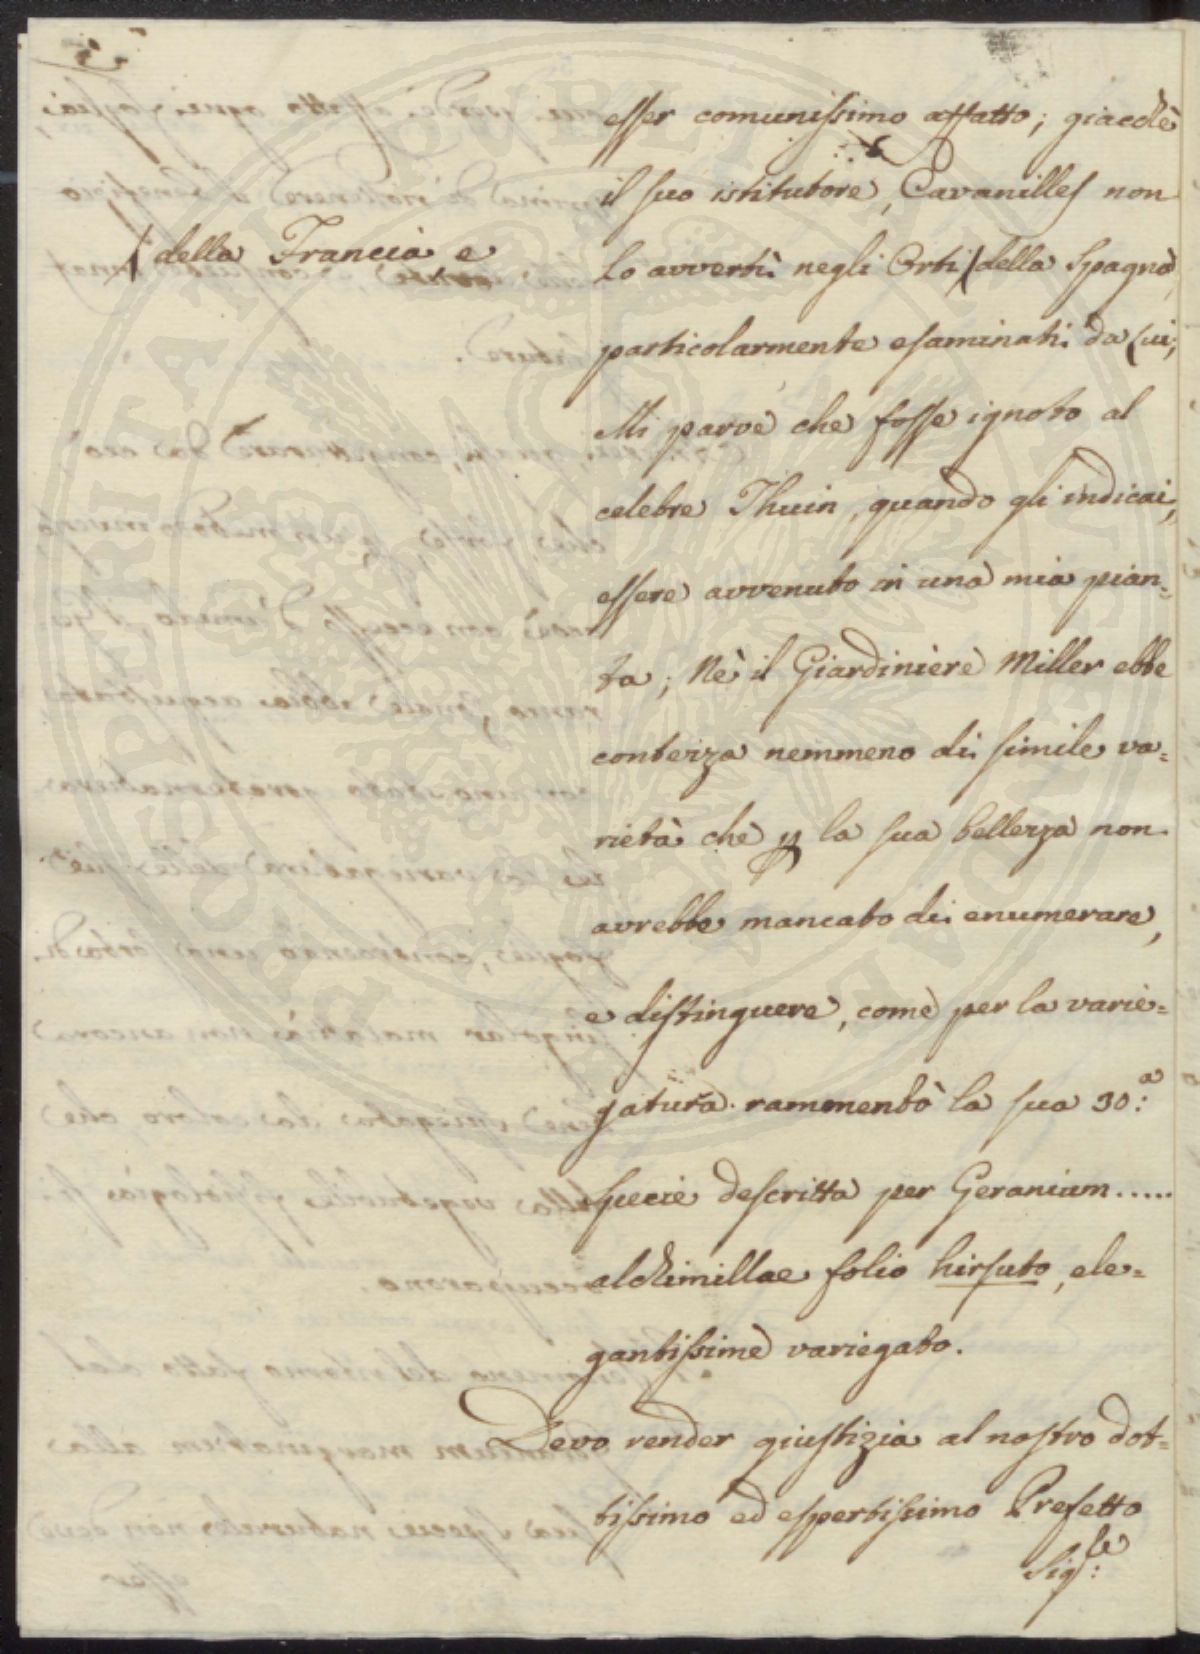 esser comunissimo affatto; giacchè
il suo istitutore, Cavanilles non
lo avvertì negli Orti /della Spagna,
/ della Francia e
particolarmente esaminati da lui;
Mi parve che fosse ignoto al
celebre Thuin, quando gli indicai,
essere avvenuto in una mia pian=
ta; Nè il Giardiniere Miller ebbe
contezza nemmeno di simile va=
rietà che p la sua bellezza non
avrebbe mancato di enumerare,
e distinguere, come per la varie=
gatura rammentò la sua 30:a
specie descritta per Geranium.....
alchimillae folio hirsuto, ele=
gantissime variegato.
Devo render giustizia al nostro dot=
tissimo ed espertissimo Prefetto
Sig:le